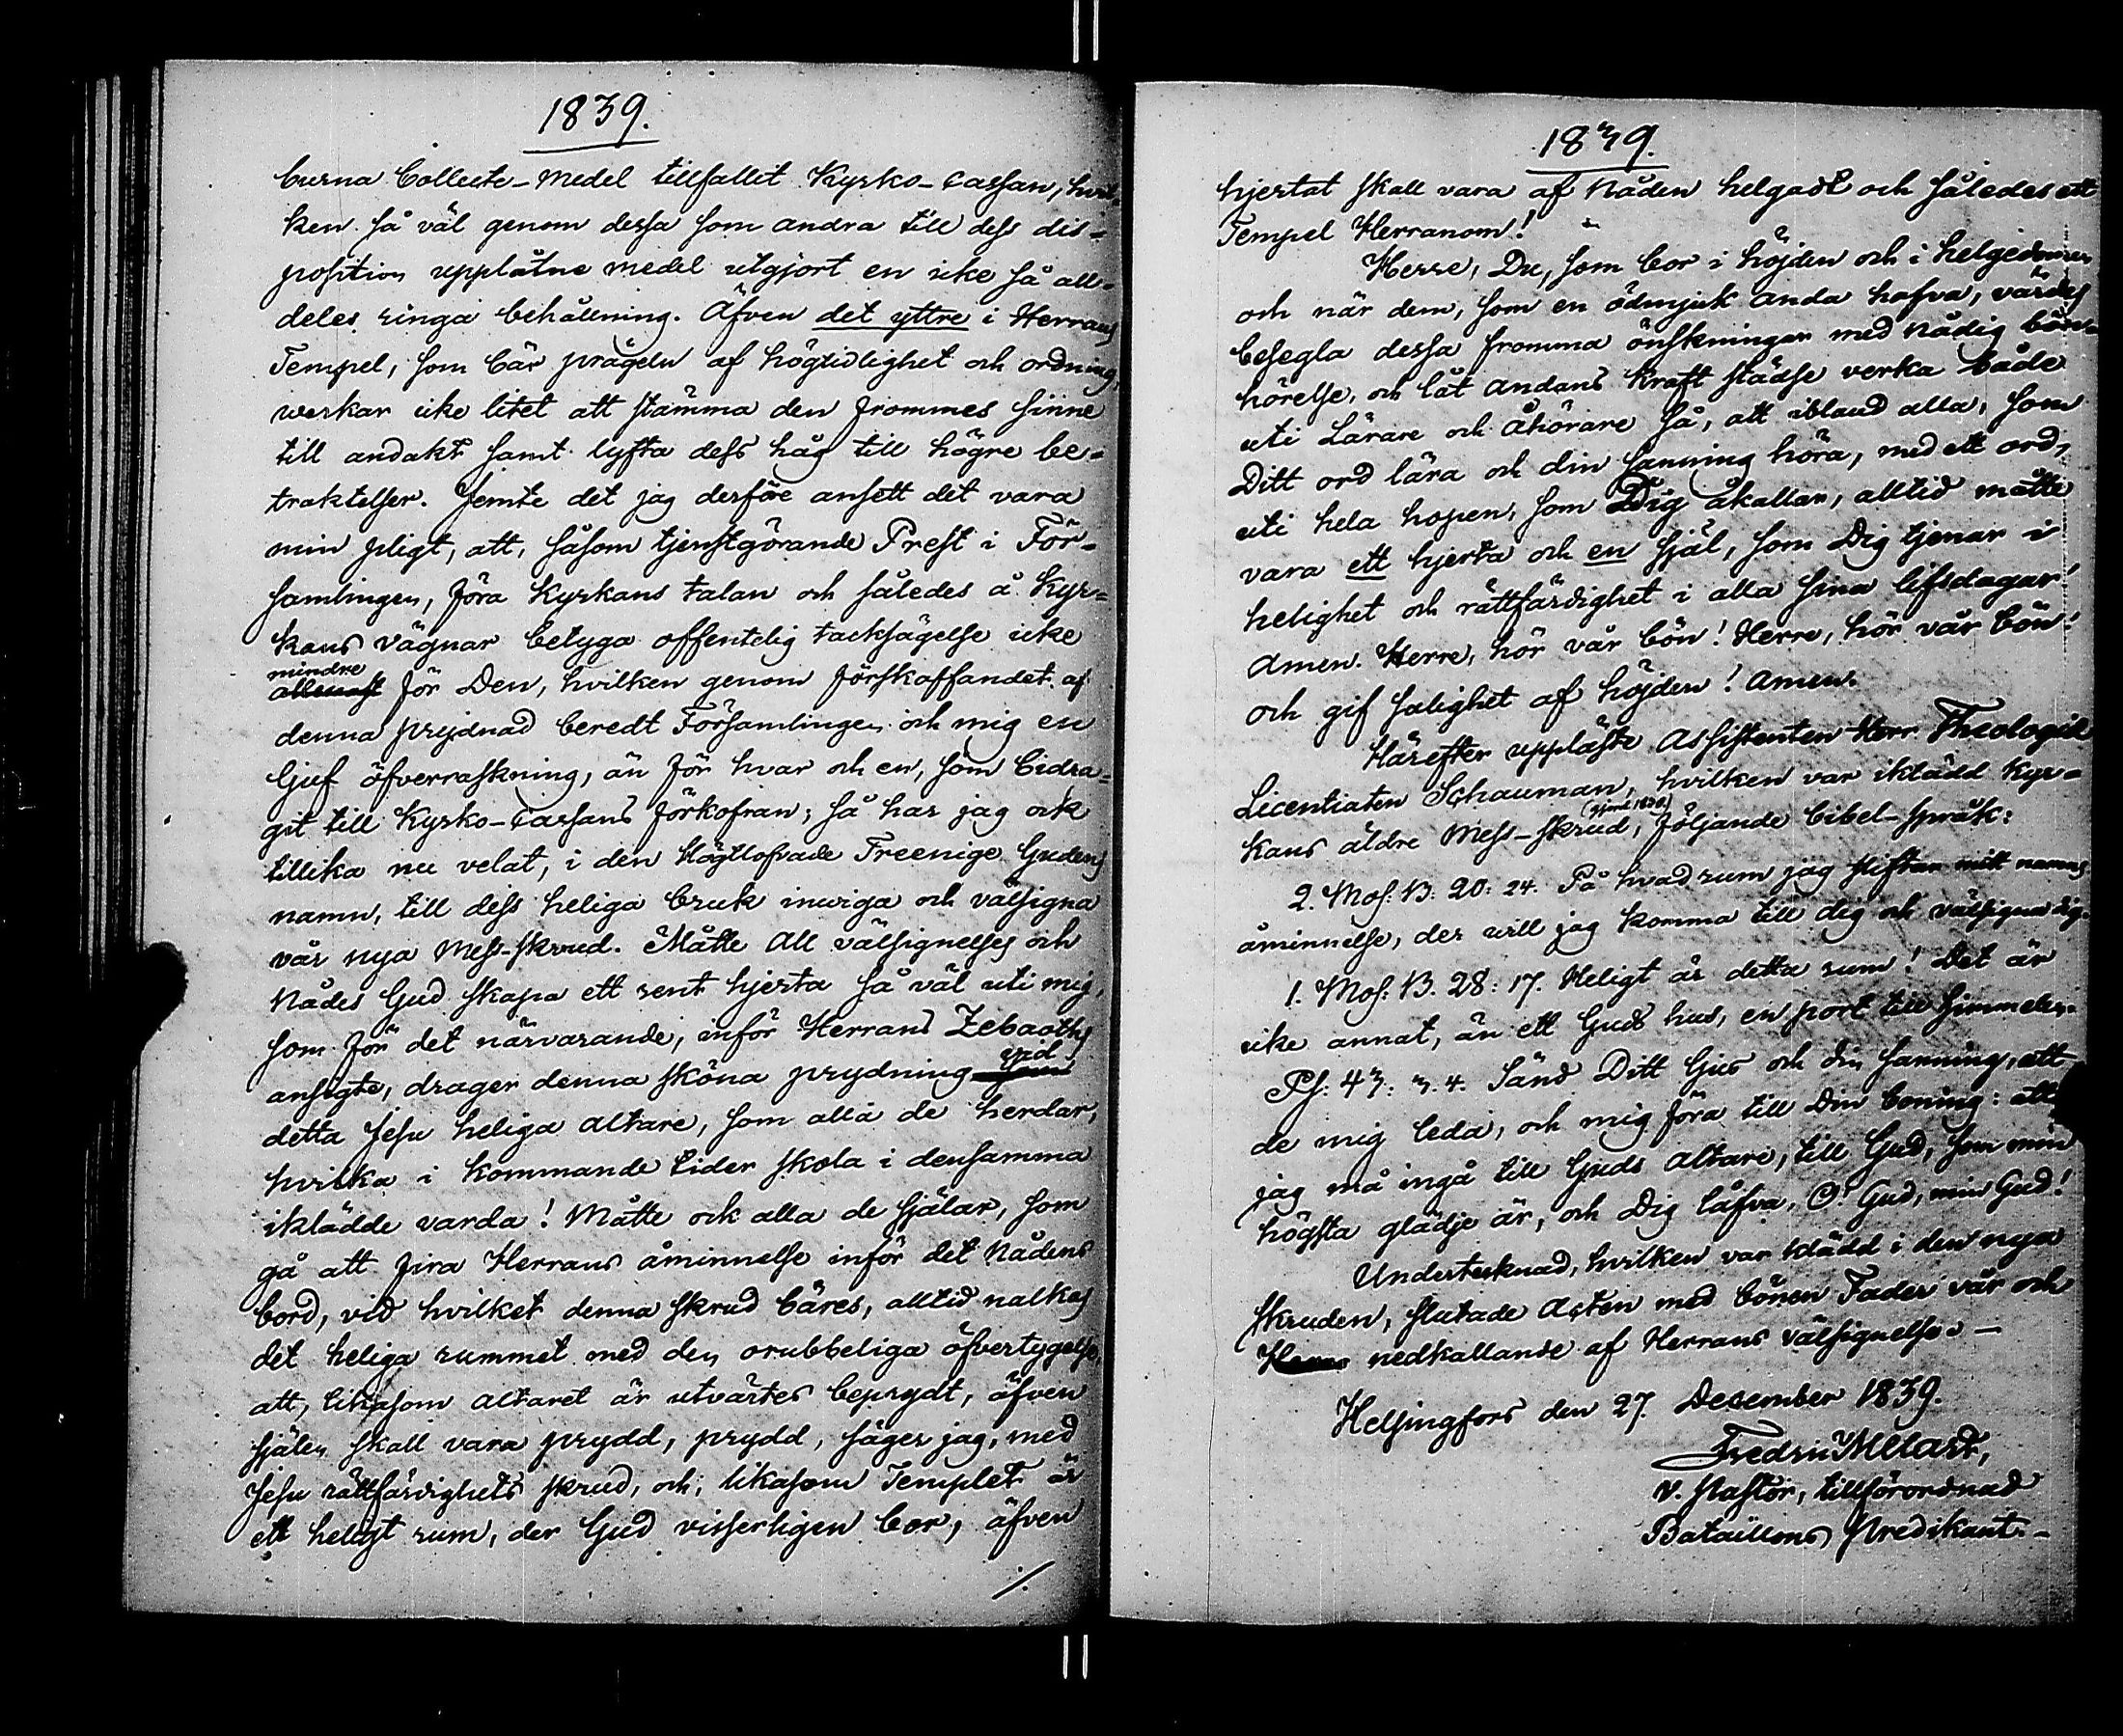 1839.
burna Collecte-Medel tillfallit Kyrko-Cassan, hvil-
ken så väl genom dessa som andra till dess dis-
position upplåtne medel utgjort en icke så all-
deles ringa behållning. Äfven det yttre i Herrans
Tempel, som bär prägeln af högtidlighet och ordning,
verkar icke litet att stämma den frommes sinne
till andakt samt lyfta dess håg till högre be-
traktelser. Jemte det jag derföre ansett det vara
min pligt, att, såsom tjenstgörande Prest i För-
samlingen, föra Kyrkans talan och således å Kyr-
kans vägnar betyga offentelig tacksägelse icke
mindre
allenast för Den, hvilken genom förskaffandet af
denna prydnad beredt Församlingen och mig en
ljuf öfverraskning, än för hvar och en, som bidra-
git till Kyrko-Cassans förkofran; så har jag ock
tillika nu velat, i den Höglofvade Treenige Gudens
namn, till dess heliga bruk inviga och välsigna
vår nya Mess-skrud. Måtte All välsignelses och
Nådes Gud skapa ett rent hjerta så väl uti mig,
som för det närvarande, inför Herrans Zebaoths
ansigte, drager denna sköna prydning
vid
detta Jesu heliga Altare, som alla de herdar,
hvilka i kommande tider skola i densamma
iklädde varda! Måtte ock alla de själar, som
gå att fira Herrans åminnelse inför det Nådens
bord, vid hvilket denna skrud bäres, alltid nalkas
det heliga rummet med den orubbeliga öfvertygelse,
att, likasom Altaret är utvärtes beprydt, äfven
själen skall vara prydd, prydd, säger jag, med
Jesu rättfärdighets skrud, och, likasom Templet är
ett heligt rum, der Gud visserligen bor, äfven
./.
1839.
hjertat skall vara af Nåden helgadt och således ett
Tempel Herranom!
Herre, Du, som bor i höjden och i helgedomen
och när dem, som en ödmjuk anda hafva, värdes
besegla dessa fromma önskningar med nådig bön-
hörelse, och låt Andans kraft städse verka både
uti Lärare och Åhörare så, att ibland alla, som
Ditt ord lära och din sanning höra, med ett ord,
uti hela hopen, som Dig åkallar, alltid måtte
vara ett hjerta och en själ, som Dig tjenar i
helighet och rättfärdighet i alla sina lifsdagar!
Amen. Herre, hör vår bön! Herre, hör vår bön!
och gif salighet af höjden! Amen.
Härefter uppläste Assistenten Herr Theologie
Licentiaten Schauman, hvilken var iklädd Kyr-
kans äldre Mess-skrud, följande bibel-språk:
2. Mos: B. 20: 24. På hvad rum jag stiftar mitt namns
åminnelse, der will jag komma till dig och välsigna dig.
1. Mos: B. 28: 17. Heligt är detta rum! Det är
icke annat, än ett Guds hus, en port till himmelen.
Ps: 43: 3. 4. Sänd Ditt ljus och din sanning, att
de mig leda, och mig föra till Din boning: att
jag må ingå till Guds Altare, till Gud, som min
högsta glädje är, och Dig låfva, O! Gud, min Gud!
Undertecknad, hvilken var klädd i den nya
skruden, slutade Acten med bönen Fader vår och
nedkallande af Herrans välsignelse. —
Helsingfors den 27. December 1839.
Fredric Melart,
v. Pastor, tillförordnad
Bataillons Predikant.—